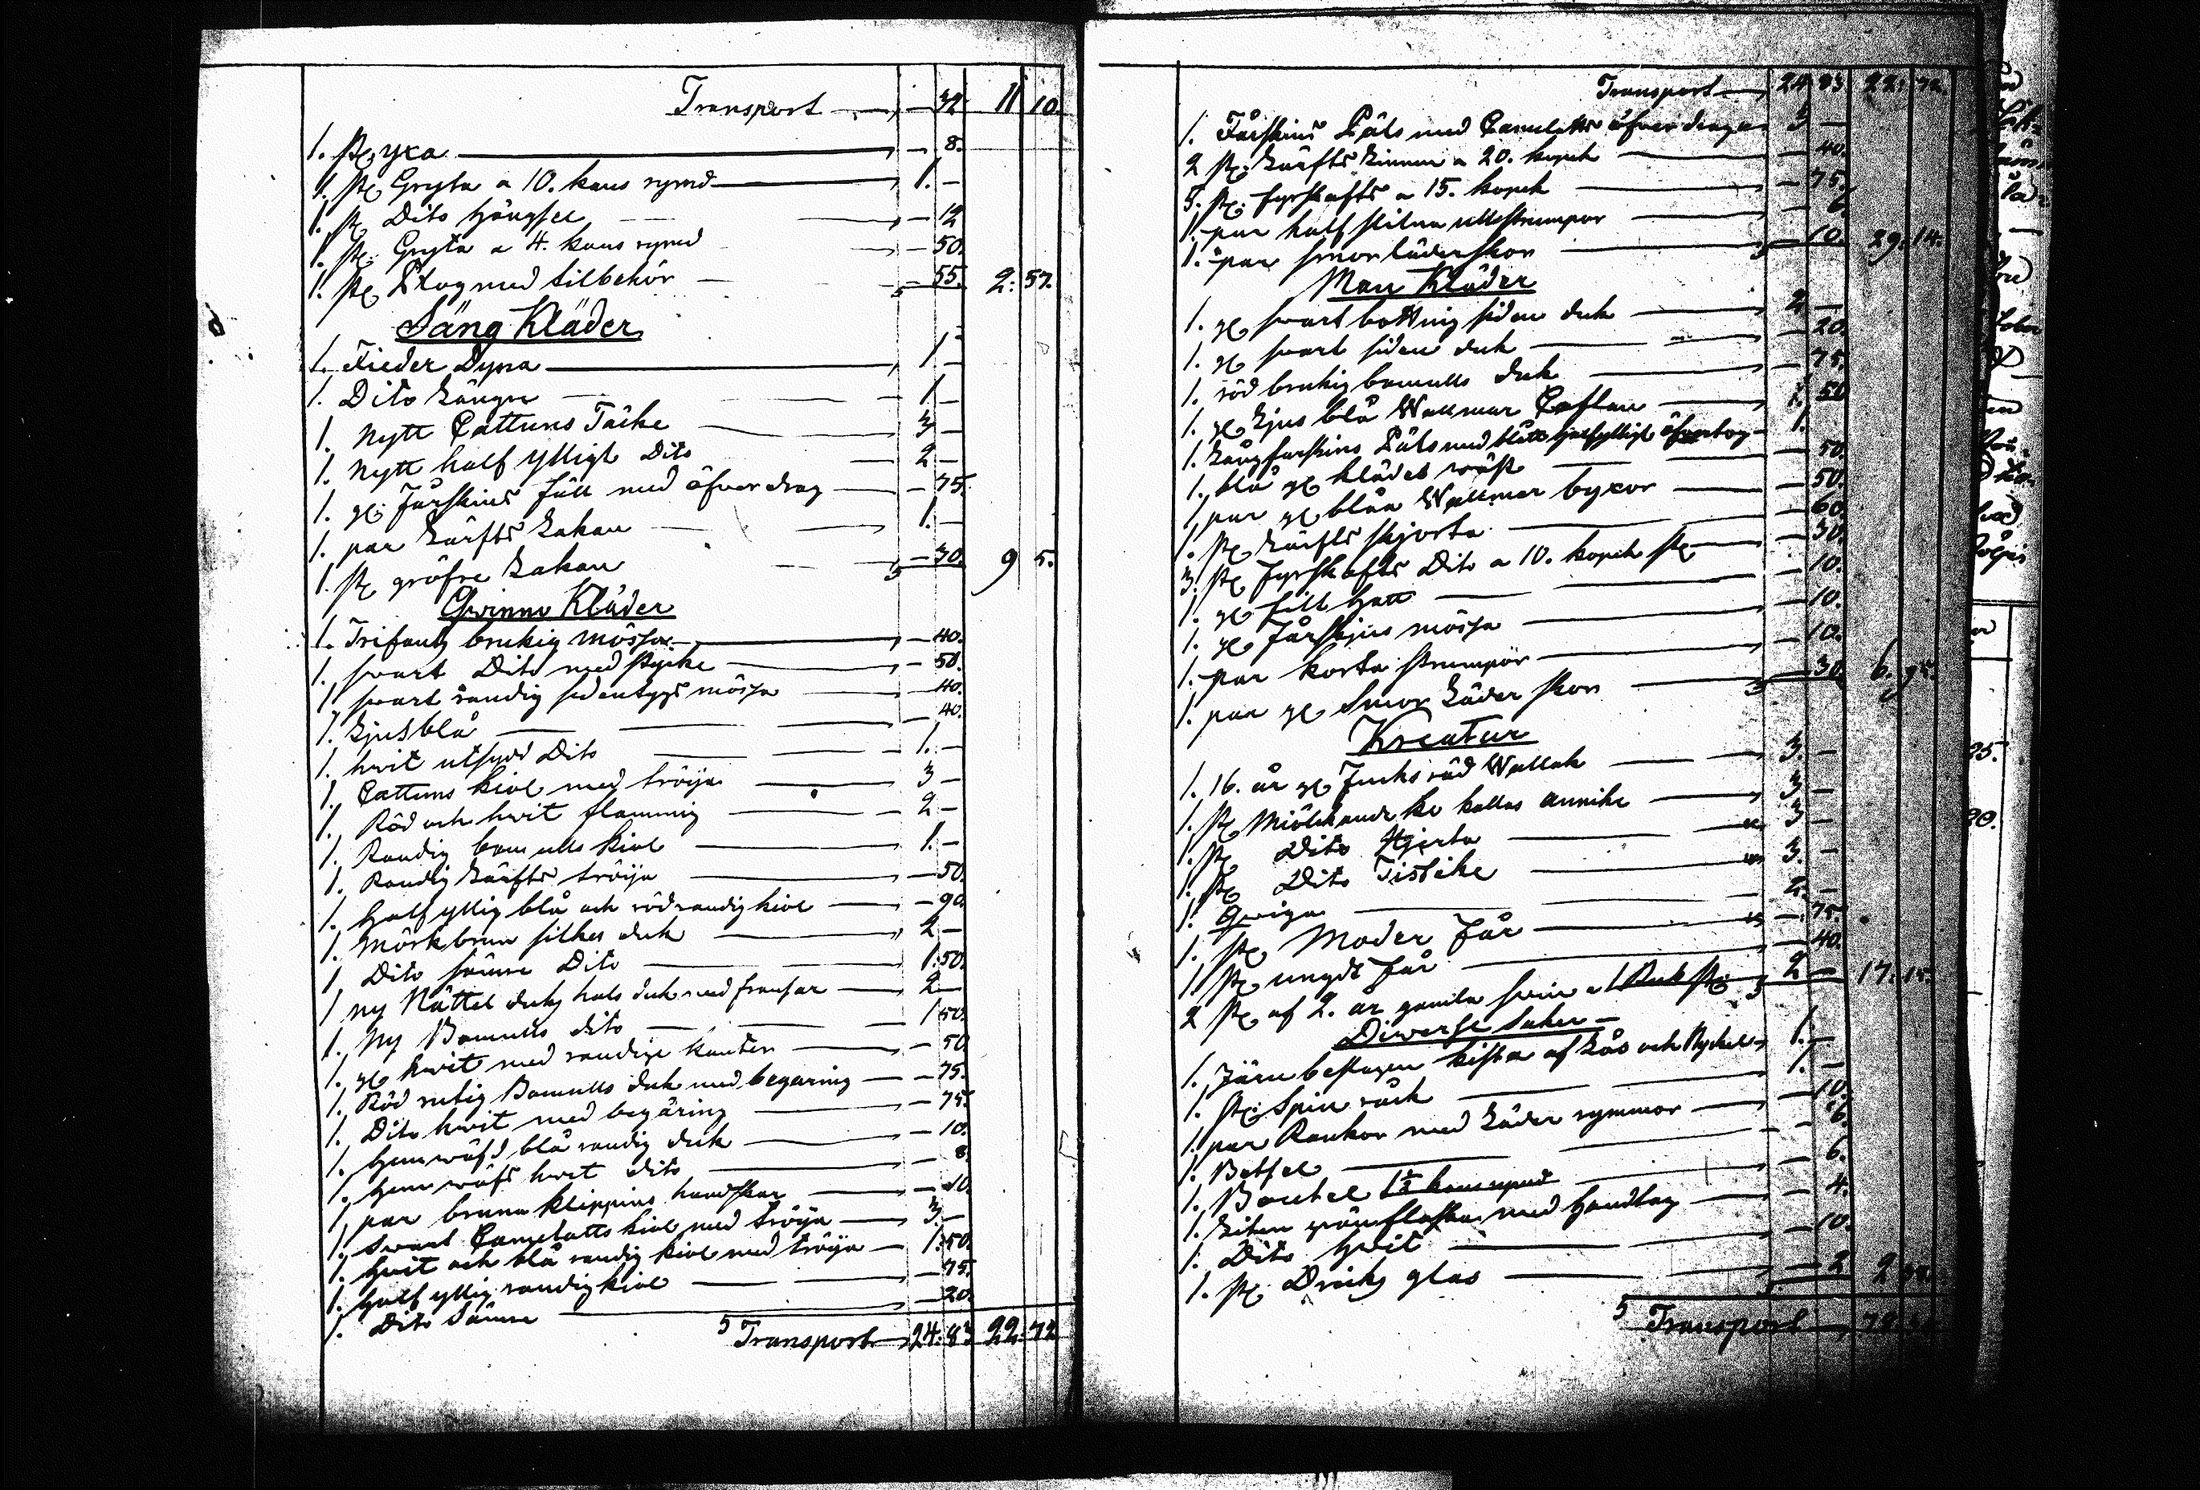 Transport — 32. 11 10.
1. st. yxa — 8.
1. st. Gryta a 10. kans rymd 1. —
1. st. Dito hängsel — 12
1. st. Gryta a 4. kans rymd — 50.
1. st. Plog med tilbehör — 55. 2: 57.
Säng Kläder
1. Fieder Dyna 1. —
1. Dito Längre 1 —
1. nytt Cattuns Täcke 3 —
1. nytt half ylligt Dito 2 —
1. gl: Fårskins fäll med öfverdrag — 75.
1. par Lärfts Lakan 1. —
1. st. gröfre Lakan — 30. 9 5.
Qwinno Kläder
1. brukig mössa — 40.
1. svart Dito med stycke — 50.
1 svart randig sidentygs mössa — 40.
1. Ljusblå — 40.
1. hvit utsydd Dito 1. —
1. Cattuns kiol med tröija 3 —
1. Röd och hvit flammig 2 —
1. Randig bomulls kiol 1. —
1. Randig Lärfts tröija — 50.
1. Half yllig blå och rödrandig kiol — 90.
1. Mörk brun silkes duk 2 —
1 Dito sämre Dito 1:50.
1 ny Nättel duks hals duk med fransar 2 —
1. Ny Bomulls dito 1 50.
1. gl hvit med randige kanter — 50
1. Röd rutig Bomulls duk med begaring — 75.
1. Dito hvit med begäring — 75.
1. hemväfd blå randig duk — 10.
1. hemväfd hvit dito — 8.
1. par bruna klippins handskar — 10.
1. svart Camelatts kiol med tröija 3. —
1. hvit och blå randig kiol med tröija 1:50.
1. Half yllig randig kiol — 75.
1. Dito Sämre — 20.
Transport 24:83 22:72
Transport 24 83 22: 72.
1. Fårskins Päls med Camelatts öfverdrag 3 —
2 st: Lärfts Linnen a 20. kopek — 40.
5. st. fyrskafts a 15. kopek — 75.
1. par half slitna ullstrumpor — 6.
1. par smorläderskor — 10. 29: 14.
Man Kläder
1. gl svart bottnig siden duk 2 —
1. gl svart siden duk — 20.
1. röd brukig bomulls duk — 75.
1. gl Ljus blå Wallmar Caftan 1. 50
1. Lång fårskins Päls med blått halfylligt öfvertog 1.
1. blå gl klädes wäst — 50.
1. par gl blåa Wallmar byxor — 50.
1. st. Lärfts skjorta — 60.
3. st. fyrskafts Dito a 10. kopek st. — 30.
1. gl filt hatt — 10.
1. gl Fårskins mössa — 10.
1. par korta strumpor — 10.
1. par gl Smor Läder skor — 30. 6. 95.
Kreatur
1. 16. år gl Fuchs röd Wallak 3. —
1. st. Miölkande ko kallas Annike 3 —
1. st. Dito Hjerta 3 —
1. st. Dito 3. —
1. Qwiga 2. —
1. st. Moder Får — 75.
1 st. ungdt får — 40.
2 st. af 2. år gamla swin a 1 Rub st. 2 — 17: 15.
Diverse Saker
1. Järn beslagen kista af Lås och Nyckel 1. —
1. st: Spin råck 1. —
1. par Rankor med Läder remmor — 10.
1. Betsel — 6.
1. Boutel 1½ kans rymd — 6.
1. Liten grön flaska med handtag — 4.
1. Dito hvit — 10.
1. st. Dricks glas — 2 2
Transport